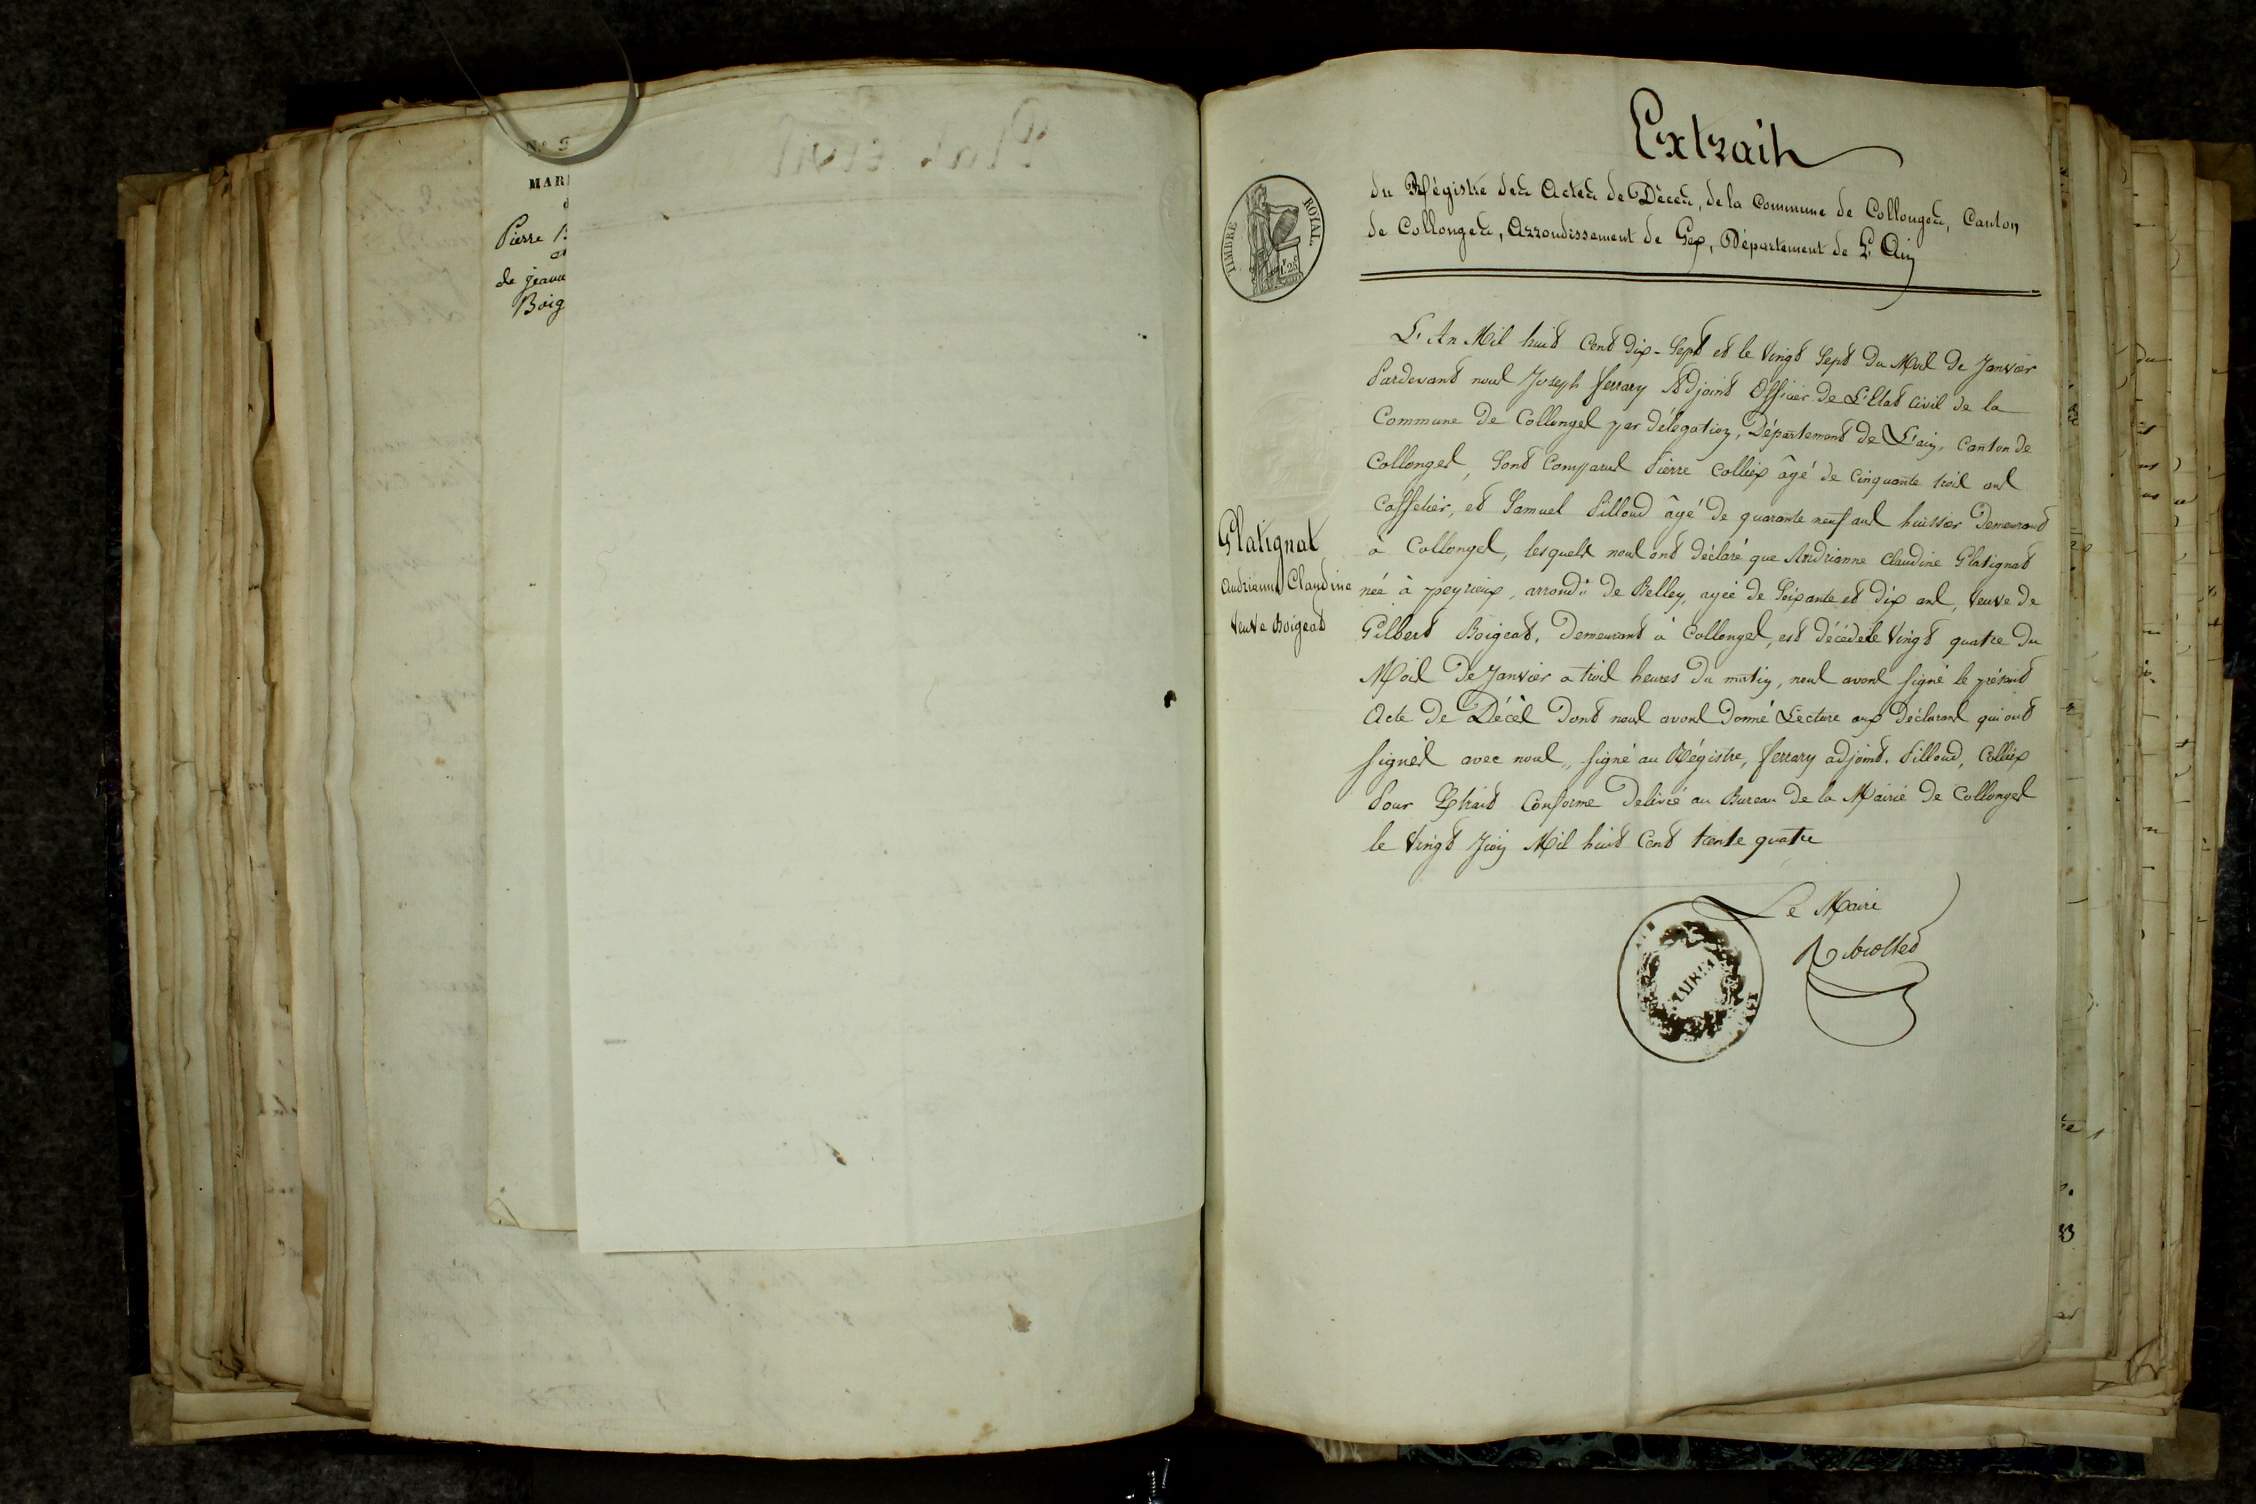 MAR
Pierre B
de jeanne
Boig
Extrait
du Régistre des Actes de Décès, de la Commune de Collonges, Canton
de Collonges, Arrondissement de Gex, Département de L'Ain
TIMBRE ROYAL
1.25
L'An Mil huit Cent dix-Sept et le Vingt Sept du Mois de Janvier
Pardevant nous Joseph ferrary Adjoint Officier de L'Etat Civil de la
Commune de Collonges par délégation, Département de L'ain, Canton de
Collonges, Sont Comparus Pierre Colliex âgé de Cinquante trois ans
Caffetier, et Samuel Pilloud âgé de quarante neuf ans huissier Demeurant
à Collonges, lesquels nous ont déclaré que Andrianne Claudine Glatignat
née à peyrieux, arrondt de Belley, agée de Soixante et dix ans, Veuve de
Gilbert Boigeat, Demeurant à Collonges, est décédée le Vingt quatre du
Mois de Janvier a trois heures du matin, nous avons signé le présent
Acte de Décès Dont nous avons donné Lecture aux Déclarans qui ont
signés avec nous,, signé au Régistre, ferrary adjoint. Pilloud, Colliex
Pour Extrait Conforme Delivré au Bureau de la Mairie de Collonges
le Vingt Juin Mil huit Cent trente quatre
Glatignat
Andrienne Claudine
Veuve Boigeat
Le Maire
MAIRIE